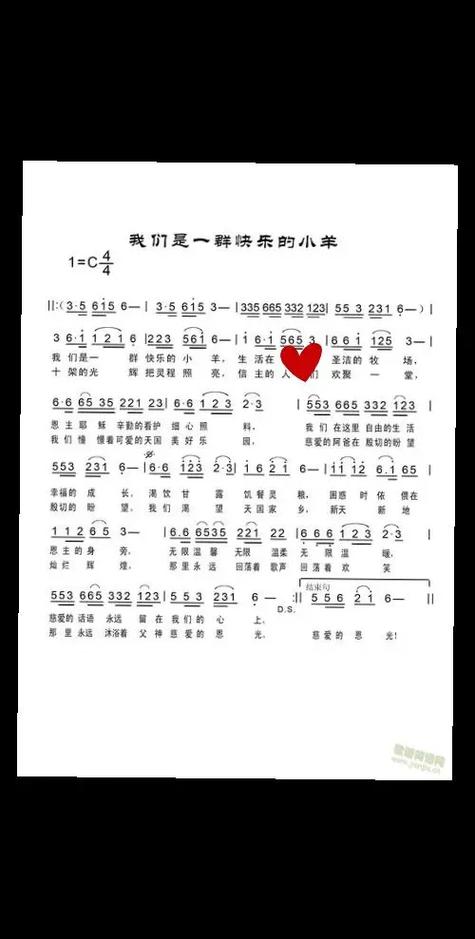 我们是一群快乐的小羊
1=C 4/4
||:( 3·5 615 3— | 3·5 615 3— | 335 665 332 123 | 55 3 231 6— )|
3 6·1 121 6—| 223 561 6— | 1 6·1 565 3 | 661 125 3— |
我们是一 群快乐的小 羊, 生活在 圣洁的牧 场,
十架的光 辉把灵程照 亮, 信主的人们 欢聚一 堂,
6·6 65 35 221 23 | 6·6 123 2·3 | 553 665 332 123 |
恩主耶稣 辛勤的看护 细心照 料, 我们在这里自由的生活
我们憧憬着可爱的天国 美好乐 园, 慈爱的阿爸在殷切的盼望
553 231 6— | 6·6 123 2·3 | 1 6 2 1 6— | 11 12 6.1 65 |
幸福的成 长, 渴饮甘露 饥餐灵 粮, 困惑时依偎在
殷切的盼 望, 我们渴望 天国家 乡, 新天 新地
112 65 3— | 6.6 6535 221 22 | 666 123 2·3 |
恩主的身 旁, 无限温馨 无限 温柔 无限温 暖,
灿烂辉 煌, 那里永远 回荡着歌声 回荡着欢 笑
553 665 332 123 | 55 3 231 6 — :|| 结束句 556 21 6— ||
D.S.
慈爱的话语永远 留在我们的心 上,
那里永远 沐浴着 父神慈爱的恩 光, 慈爱的恩 光!